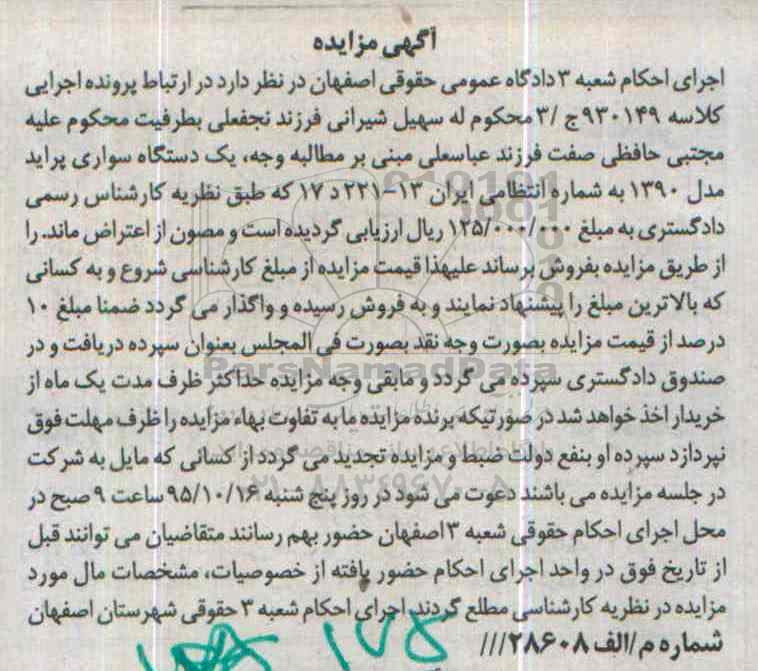 آگهی مزایده
اجرای احکام شعبه ۳ دادگاه عمومی حقوقی اصفهان در نظر دارد در ارتباط پرونده اجرایی
کلاسه ۹۳۰۱۴۹ج /۳ محکوم له سهیل شیرانی فرزند نجفعلی بطرفیت محکوم علیه
مجتبی حافظی صفت فرزند عباسعلی مبنی بر مطالبه وجه، یک دستگاه سواری پراید
مدل ۱۳۹۰ به شماره انتظامی ایران ۱۳-۲۲۱ د ۱۷ که طبق نظریه کارشناس رسمی
دادگستری به مبلغ ۱۲۵/۰۰۰/۰۰۰ ریال ارزیابی گردیده است و مصون از اعتراض ماند. را
از طریق مزایده بفروش برساند علیهذا قیمت مزایده از مبلغ کارشناسی شروع و به کسانی
که بالاترین مبلغ را پیشنهاد نمایند و به فروش رسیده و واگذار می گردد ضمنا مبلغ ۱۰
درصد از قیمت مزایده بصورت وجه نقد بصورت فی المجلس بعنوان سپرده دریافت و در
صندوق دادگستری سپرده می گردد و مابقی وجه مزایده حداکثر ظرف مدت یک ماه از
خریدار اخذ خواهد شد در صورتیکه برنده مزایده ما به تفاوت بهاء مزایده را ظرف مهلت فوق
نپردازد سپرده او بنفع دولت ضبط و مزایده تجدید می گردد از کسانی که مایل به شرکت
در جلسه مزایده می باشند دعوت می شود در روز پنج شنبه ۹۵/۱۰/۱۶ ساعت ۹ صبح در
محل اجرای احکام حقوقی شعبه ۳ اصفهان حضور بهم رسانند متقاضیان می توانند قبل
از تاریخ فوق در واحد اجرای احکام حضور یافته از خصوصیات، مشخصات مال مورد
مزایده در نظریه کارشناسی مطلع گردند اجرای احکام شعبه ۳ حقوقی شهرستان اصفهان
شماره م/الف ۲۸۶۰۸///
ParsNamadData